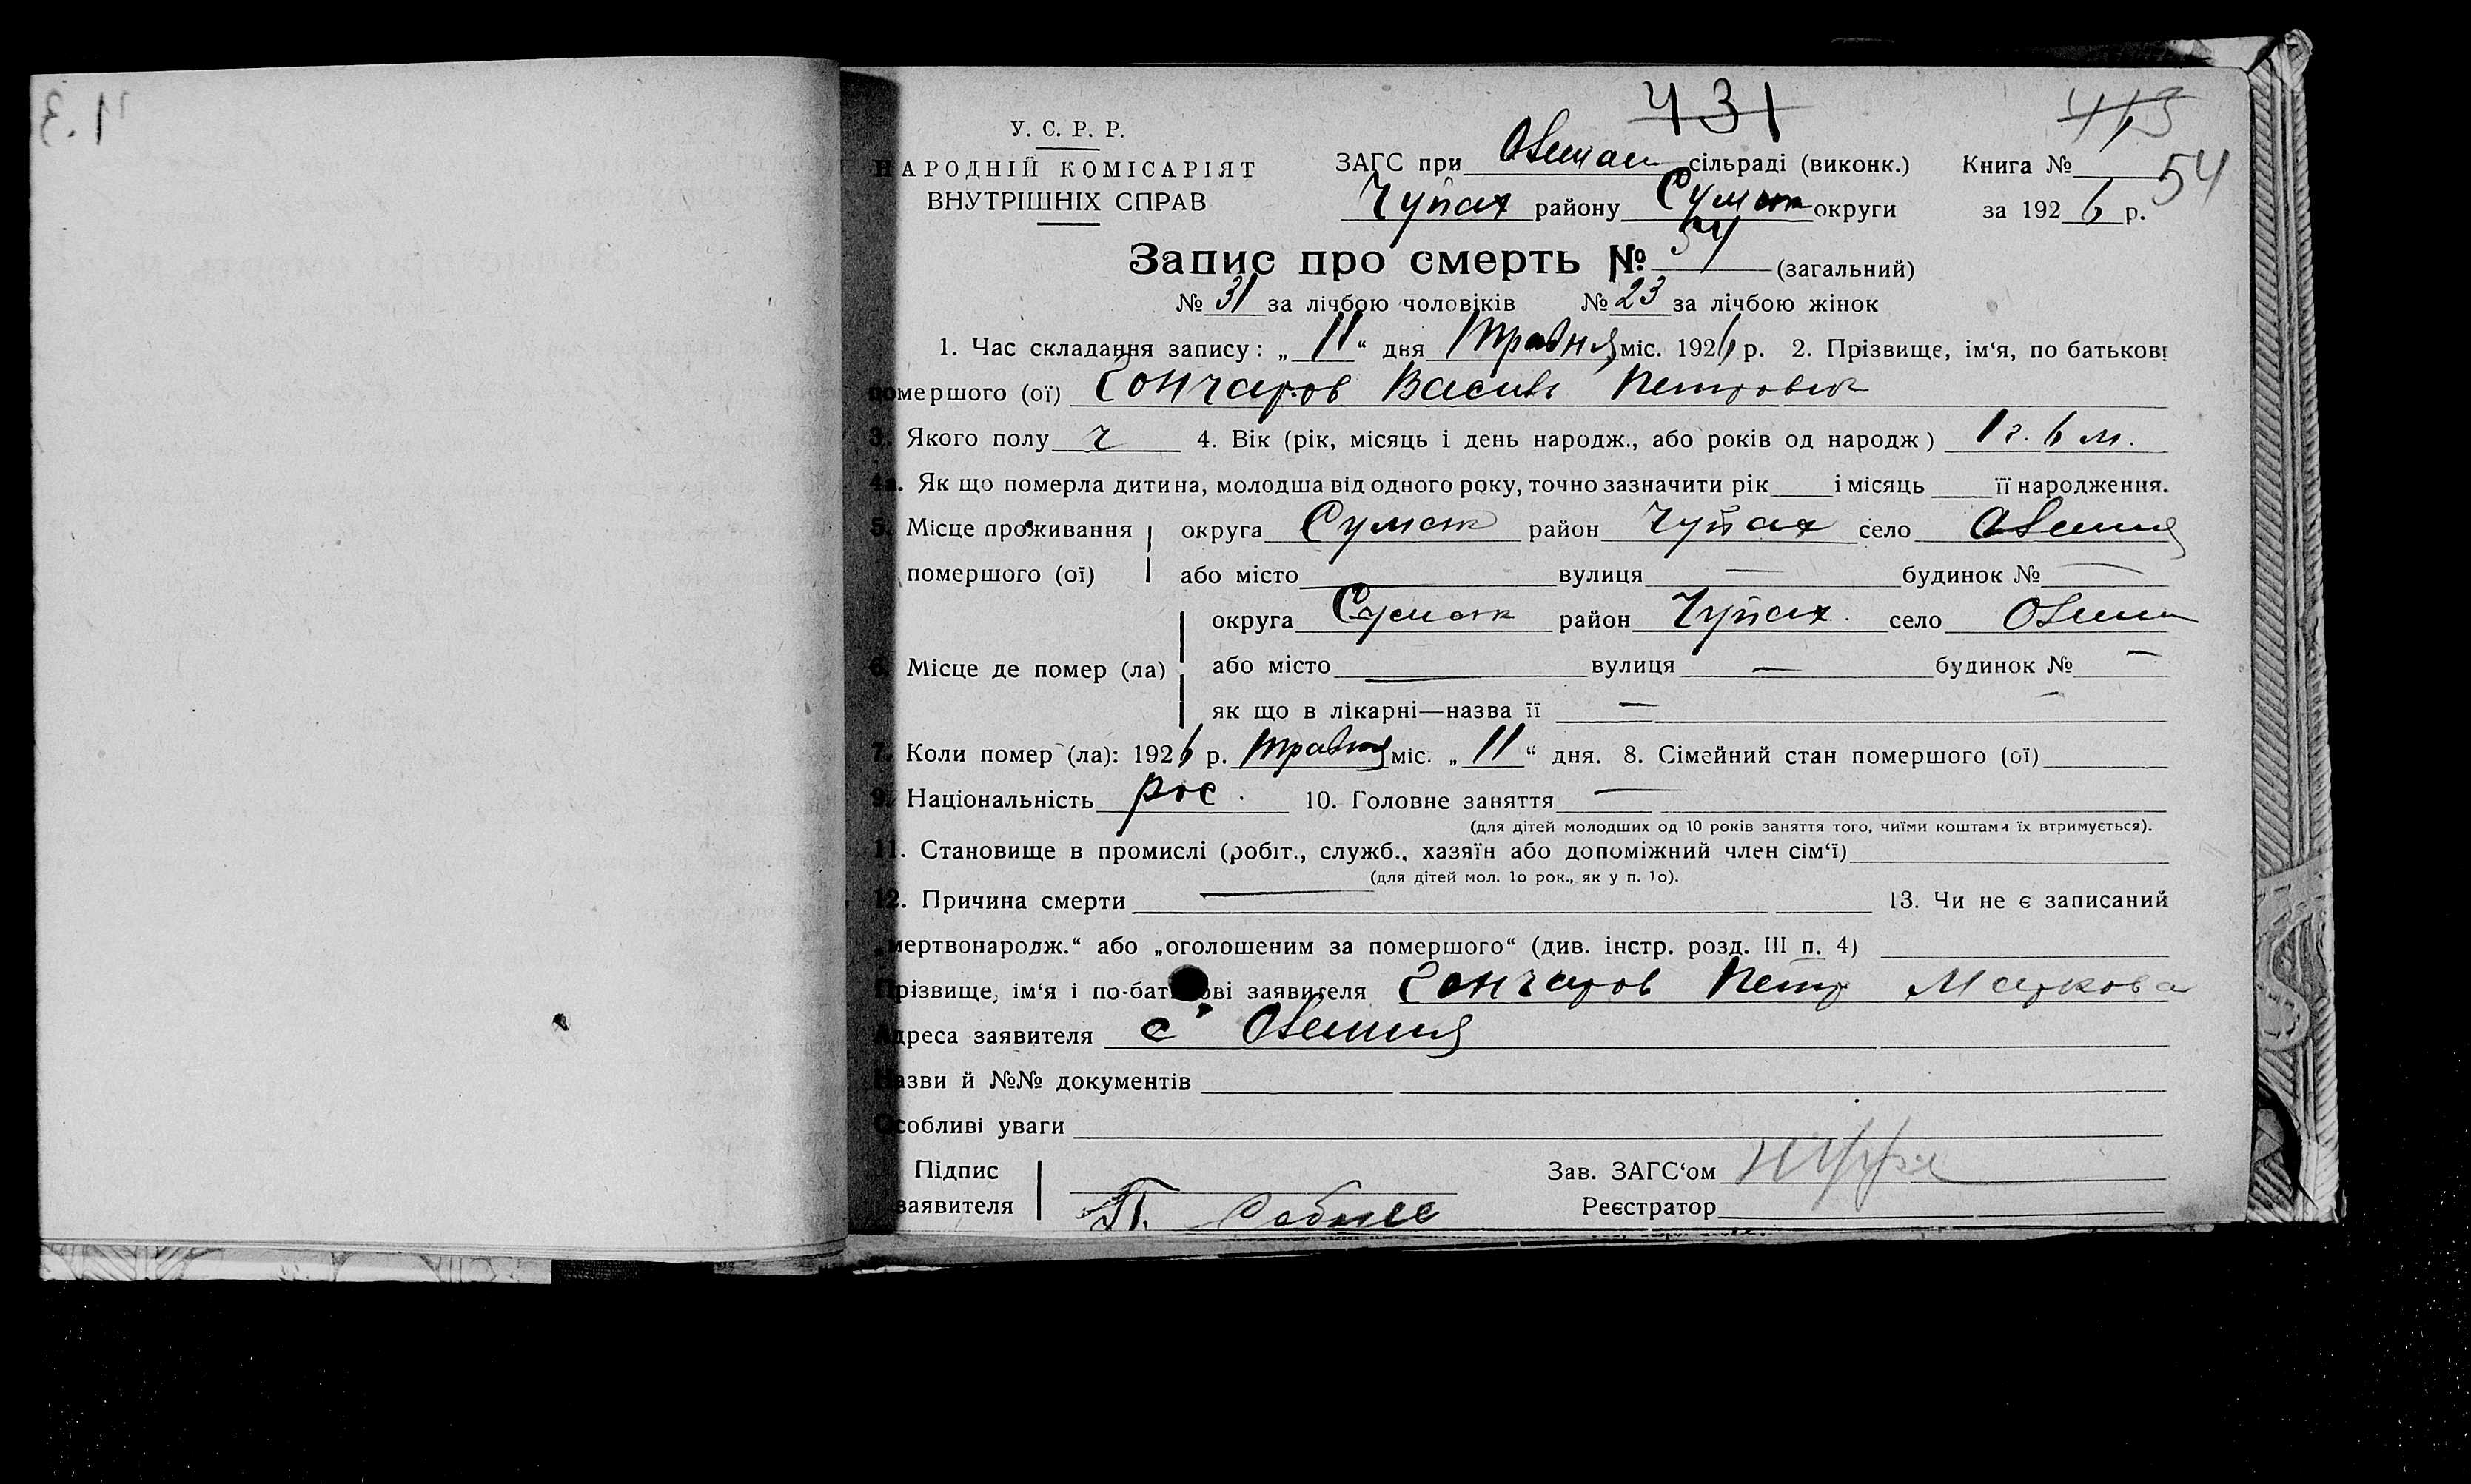 431
413
54
У. С. Р. Р.
НАРОДНІЙ КОМІСАРІЯТ
ВНУТРІШНІХ СПРАВ
ЗАГС при сільраді (виконк.) Книга №
Чупах району Сумськ округи за 1926 р.
Запис про смерть № 54 (загальний)
№ 31 за лічбою чоловіків № 23 за лічбою жінок
1. Час складання запису: „ 11 “ дня Травня міс. 1926 р. 2. Прізвище, ім‘я, по батькові
помершого (ої) Гончаров Василь Петрович
3. Якого полу ч 4. Вік (рік, місяць і день народж., або років од народж) 1 г. 6 м.
4а. Як що померла дитина, молодша від одного року, точно зазначити рік і місяць її народження.
5. Місце проживання округа Сумськ район Чупах село
помершого (ої) або місто вулиця — будинок № —
округа Сумськ район Чупах. село
6. Місце де помер (ла) або місто — вулиця — будинок № —
як що в лікарні—назва її —
7. Коли помер (ла): 1926 р. Травня міс. „ 11 “ дня. 8. Сімейний стан помершого (ої)
9. Національність рос. 10. Головне заняття —
(для дітей молодших од 10 років заняття того, чиїми коштами їх втримується).
11. Становище в промислі (робіт., служб., хазяїн або допоміжний член сім‘ї)
(для дітей мол. 1о рок., як у п. 1о).
12. Причина смерти — 13. Чи не є записаний
„мертвонародж.“ або „оголошеним за помершого“ (див. інстр. розд. III п. 4)
Прізвище, ім‘я і по-батькові заявителя Гончаров Петр Маркова
Адреса заявителя с.
Назви й №№ документів
Особливі уваги
Підпис
заявителя П.
Зав. ЗАГС‘ом
Реєстратор